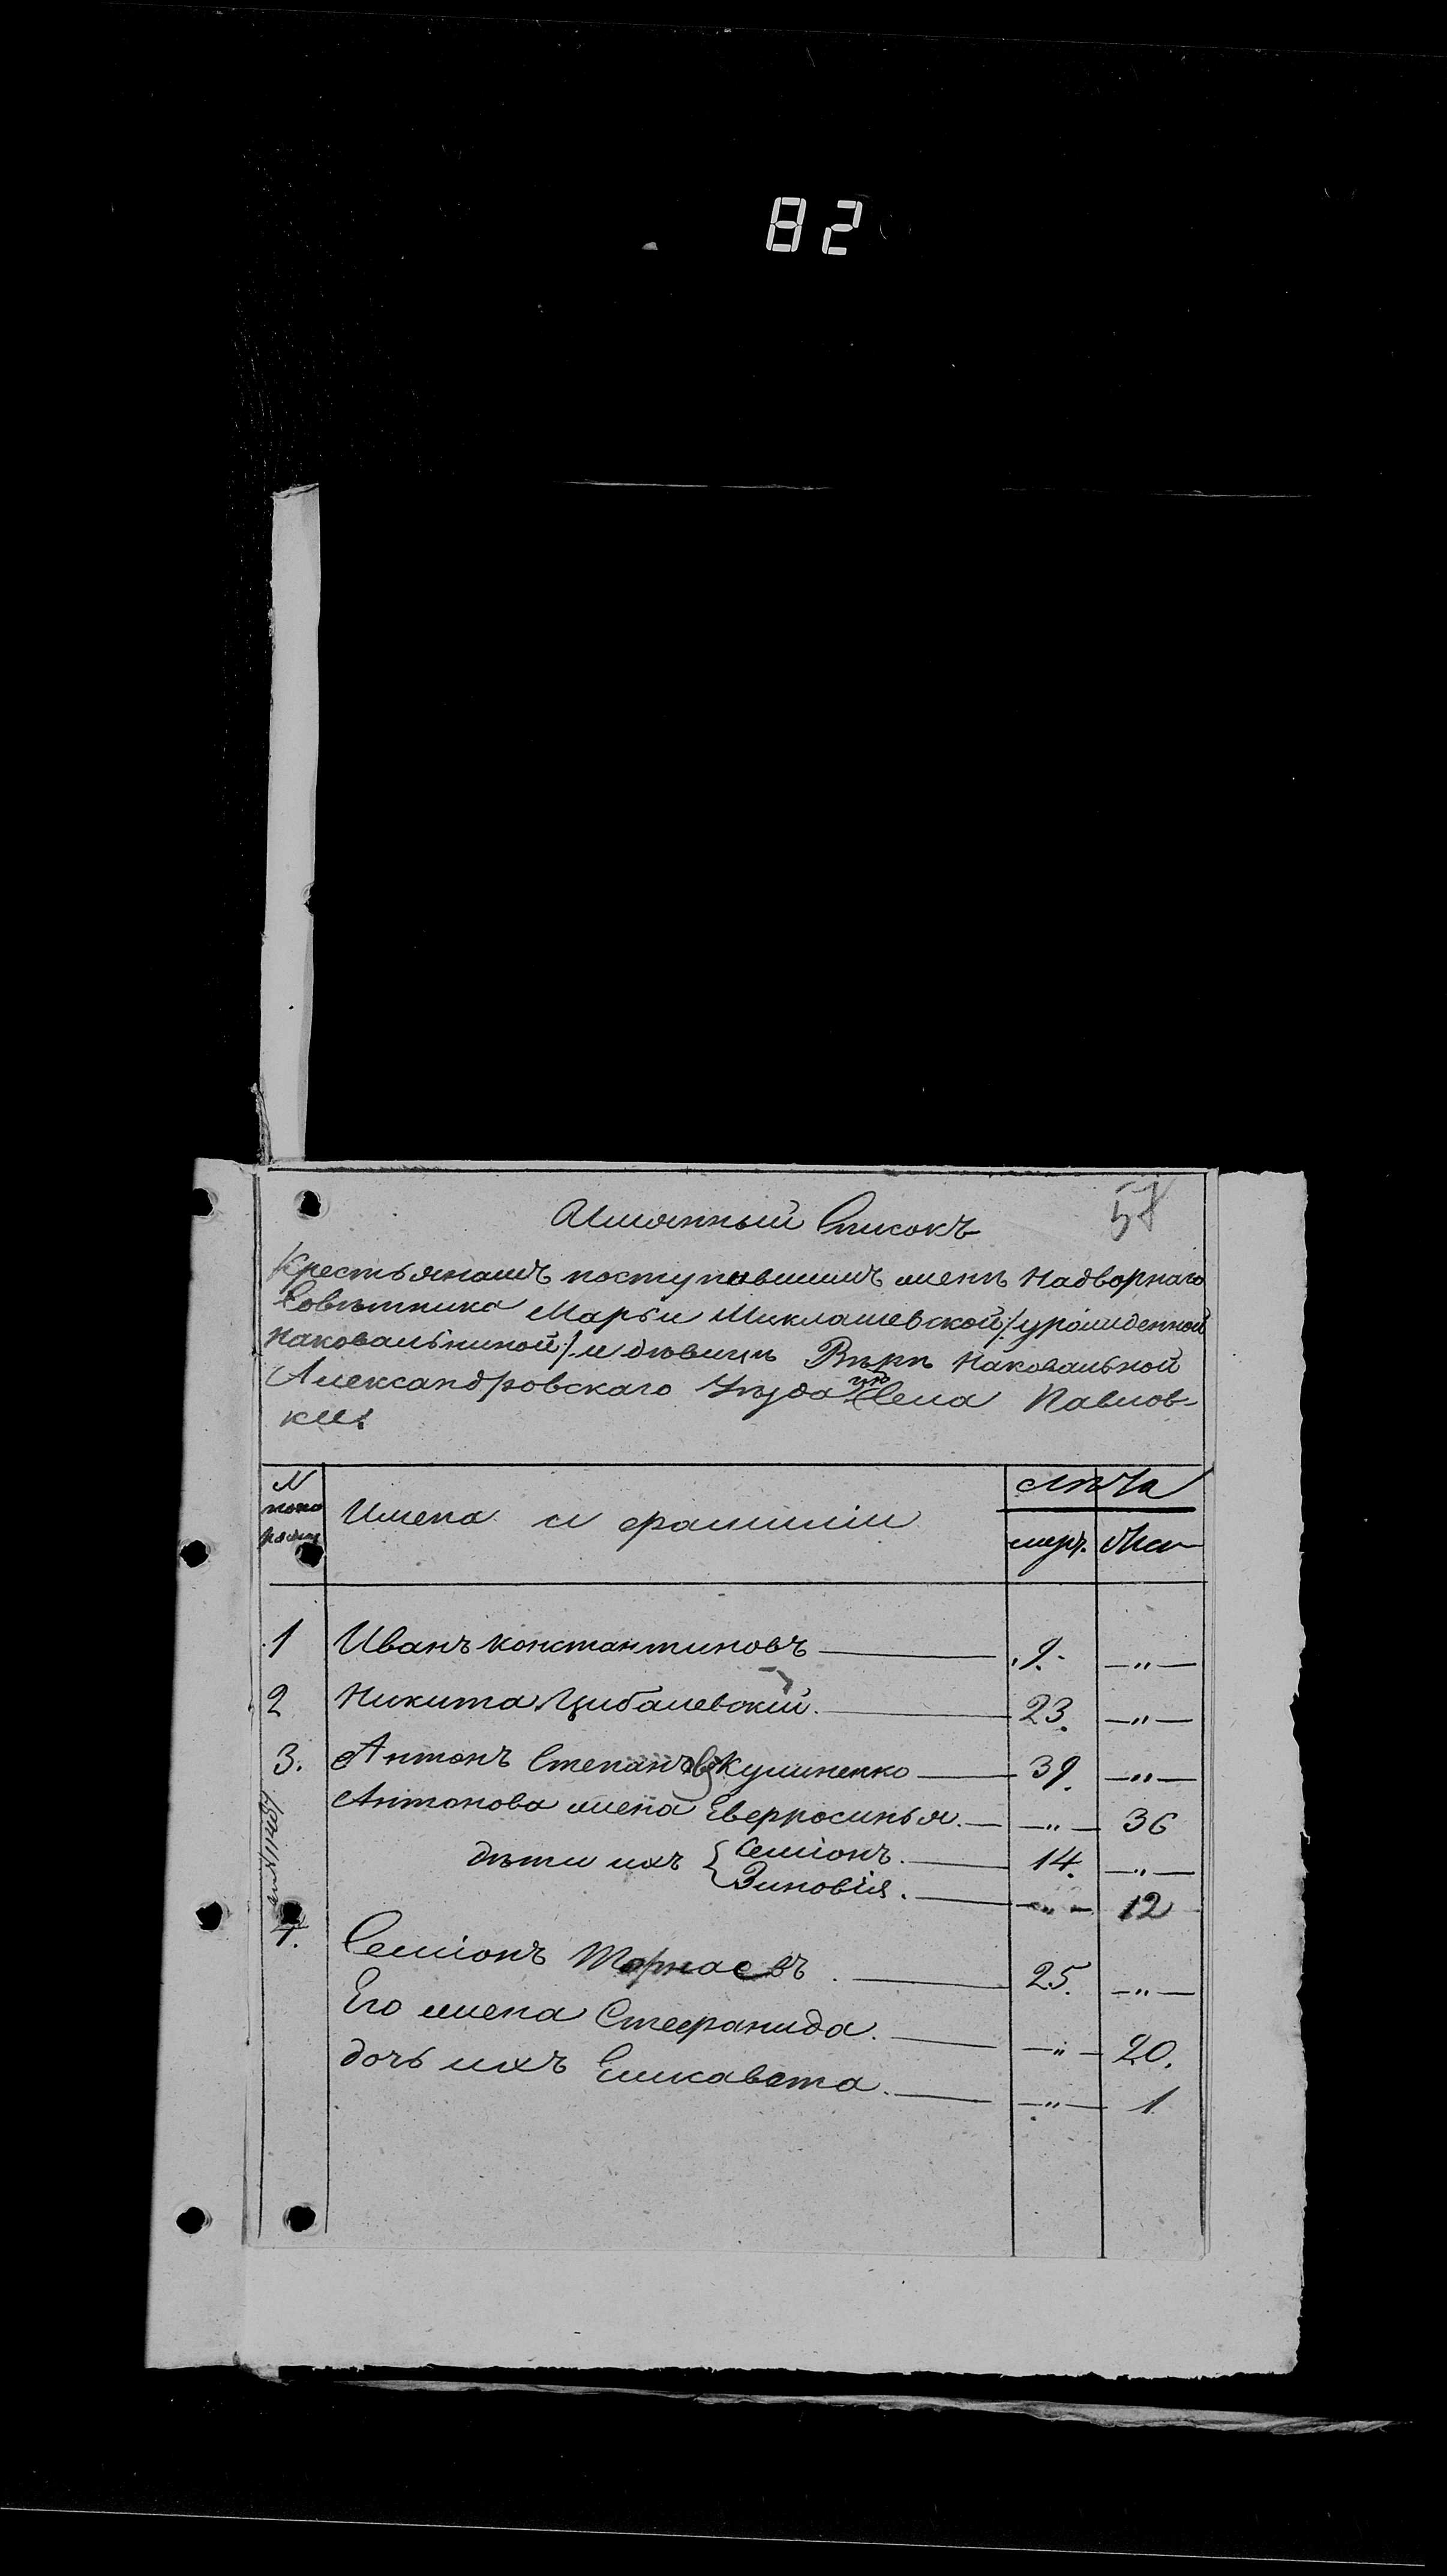 82
57
Имянный Списокъ
Крестьянамъ поступившимъ женѣ Надворнаго
Совѣтника Марьи Миклашевской /:урожденной
Наковальниной:/ и дѣвицѣ Вѣрѣ Наковальной
Александровскаго Уѣзда Села Павлов-
ки.
N Имена и фамиліи лѣта
муж. жен
1 Иванъ Константиновъ 9. — " —
2 Никита Цибалевскій. 23. — " —
3. Антонъ Степановъ Кулиненко 39. — " —
Антонова жена Еверросинья. — " — 36
дѣти ихъ { Семіонъ. 14. — " —
Зиновія. — " — 12
4. Семіонъ 25. — " —
Его жена Стефанида. — " — 20.
дочь ихъ Елисавета. — " — 1